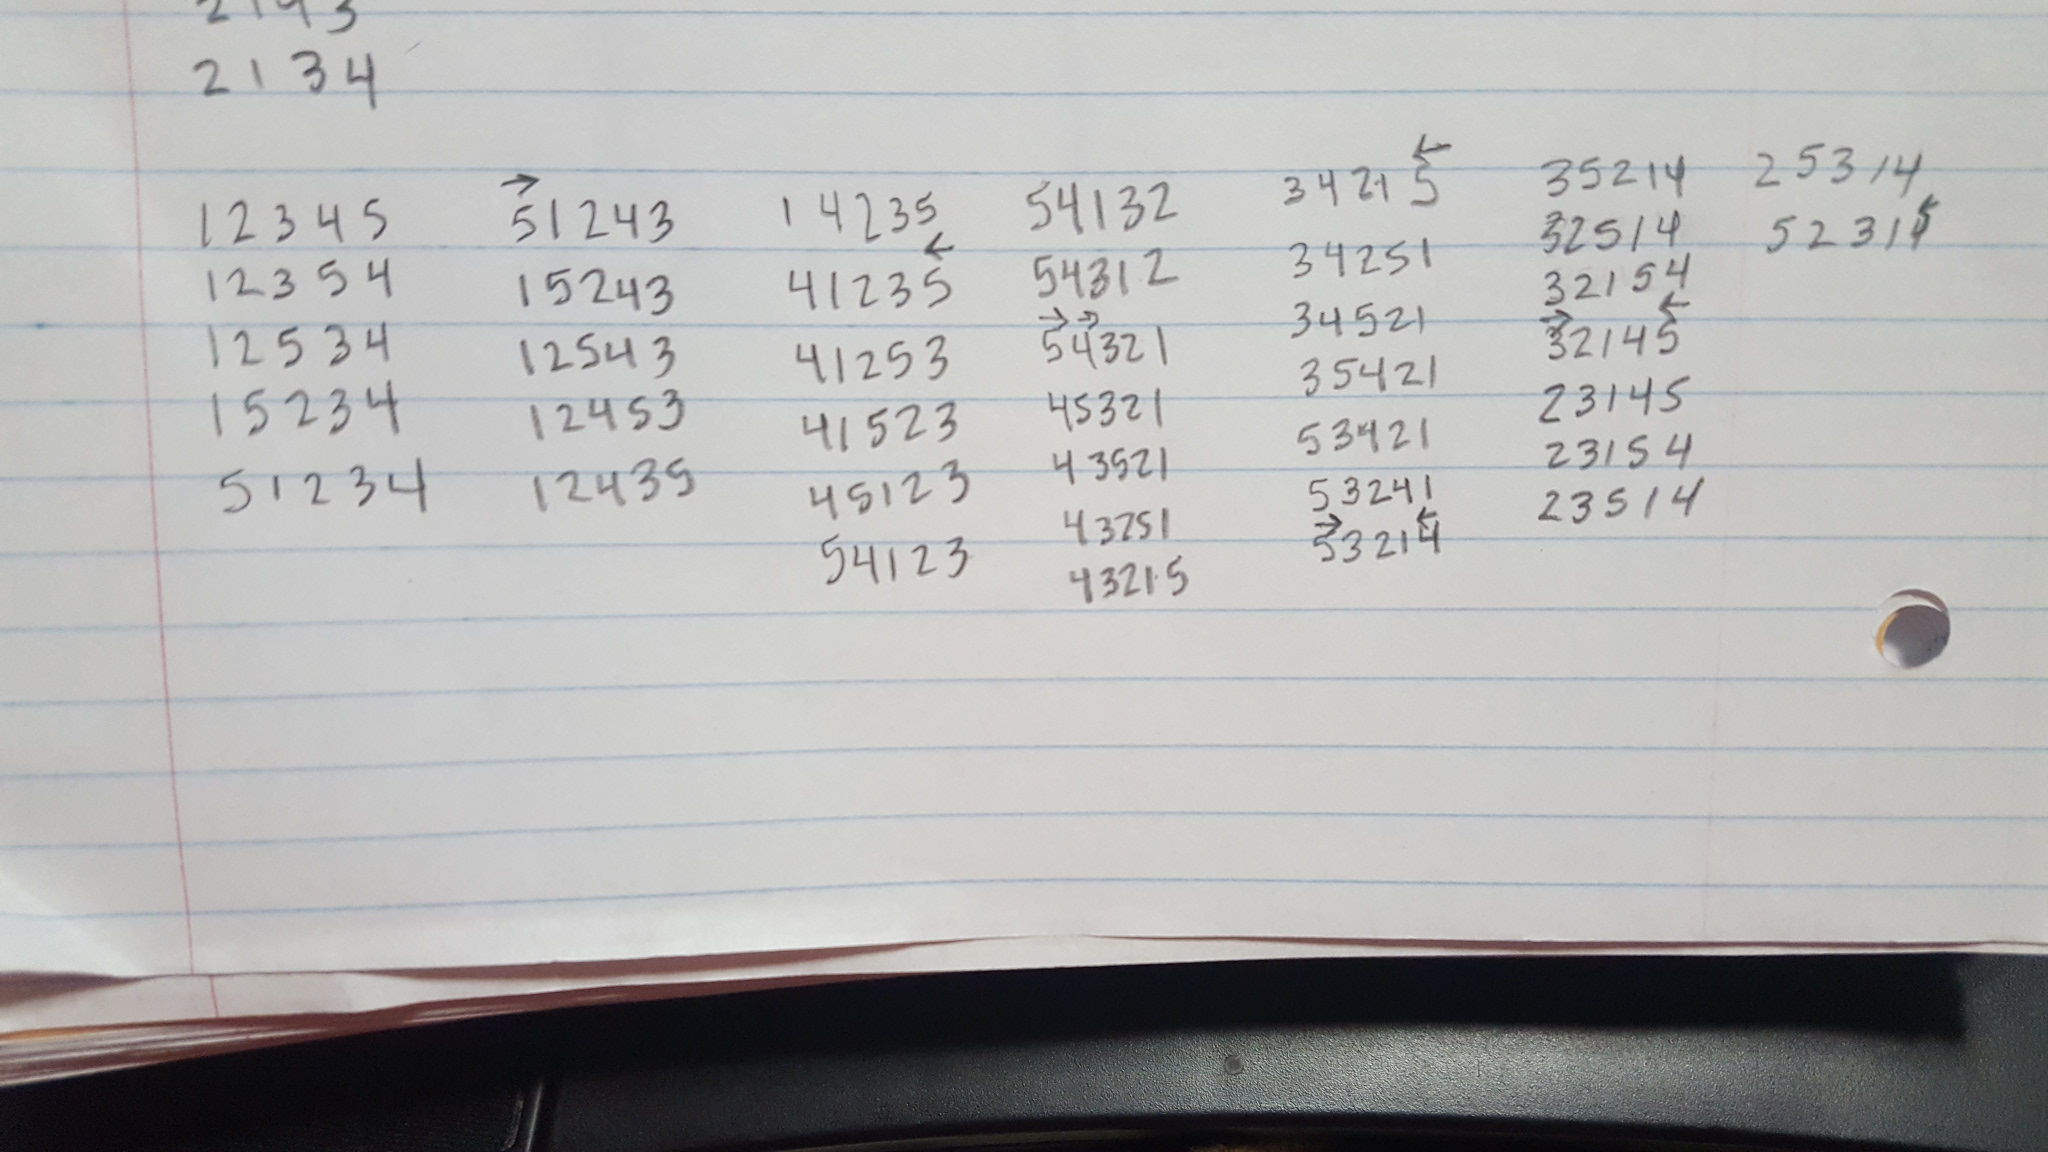 2143
2134
12345
12354
12534
15234
51234
→
51243
15243
12543
12453
12435
14235
←
41235
41253
41523
45123
54123
54132
54312
→ →
54321
45321
43521
43251
43215
←
34215
34251
34521
35421
53421
53241
→ ←
53214
35214
32514
32154
→ ←
32145
23145
23154
23514
25314
←
52314